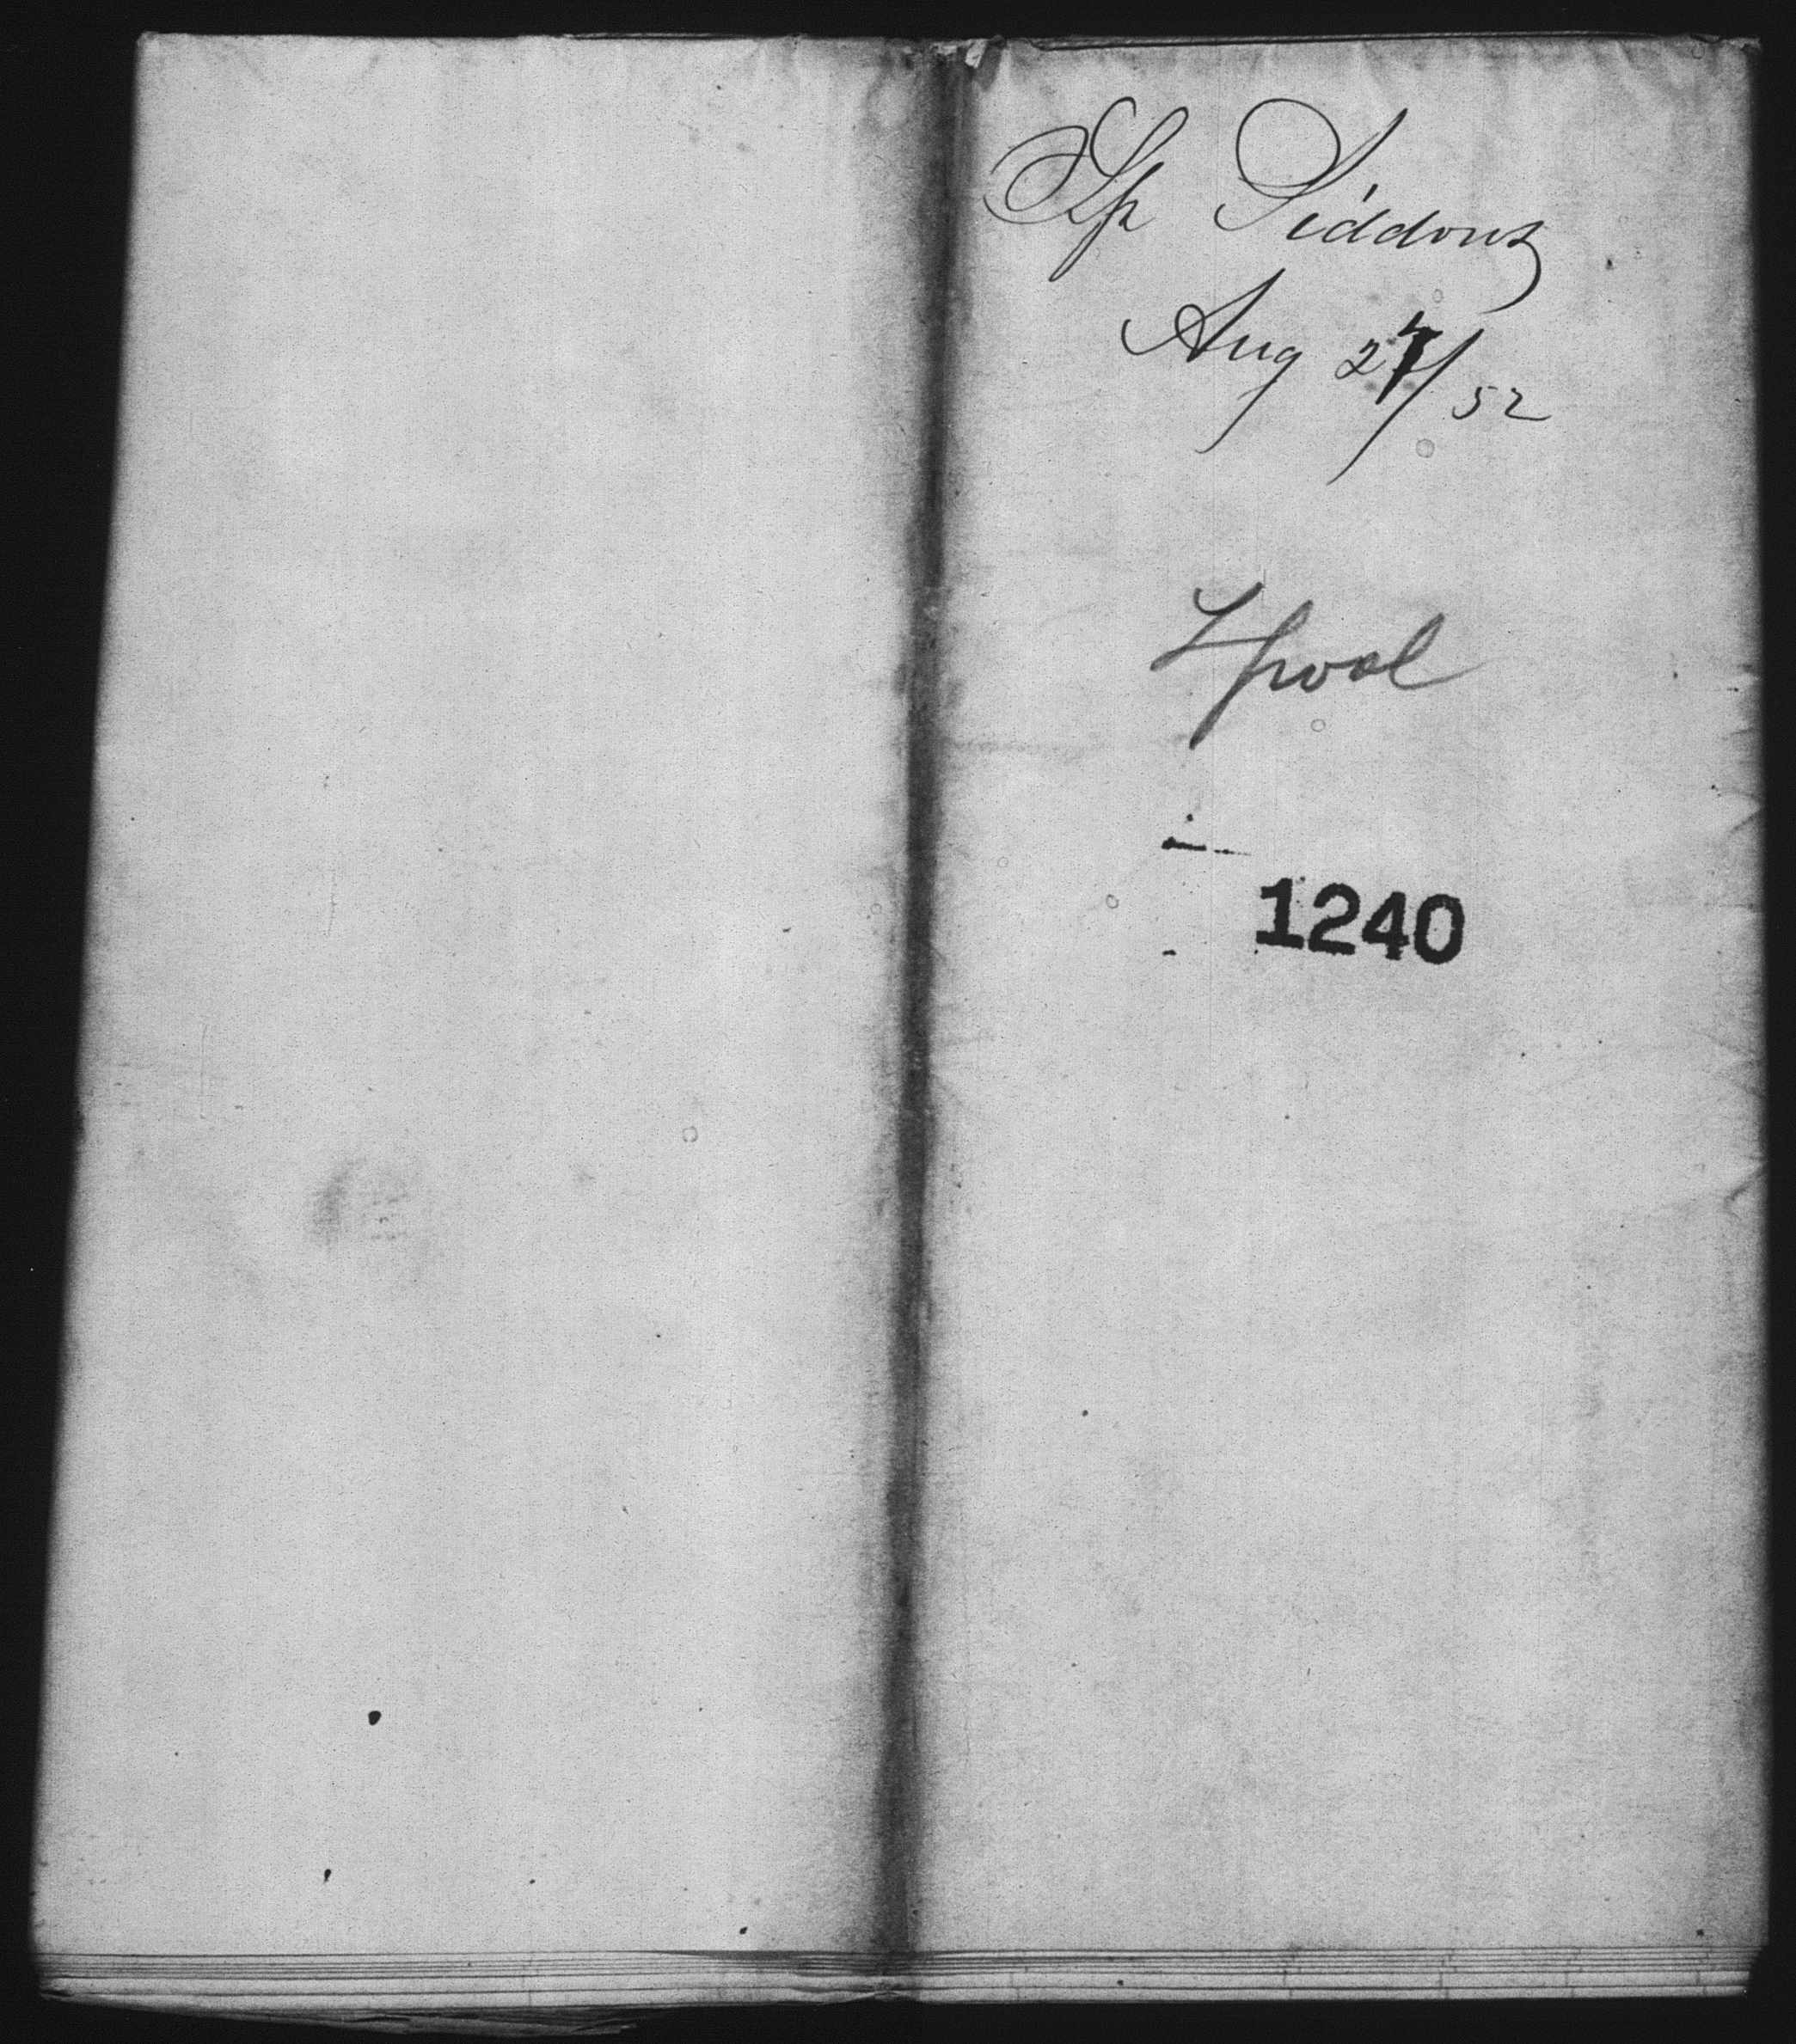 Shp Siddons
Aug 27/52
Lpool
1240